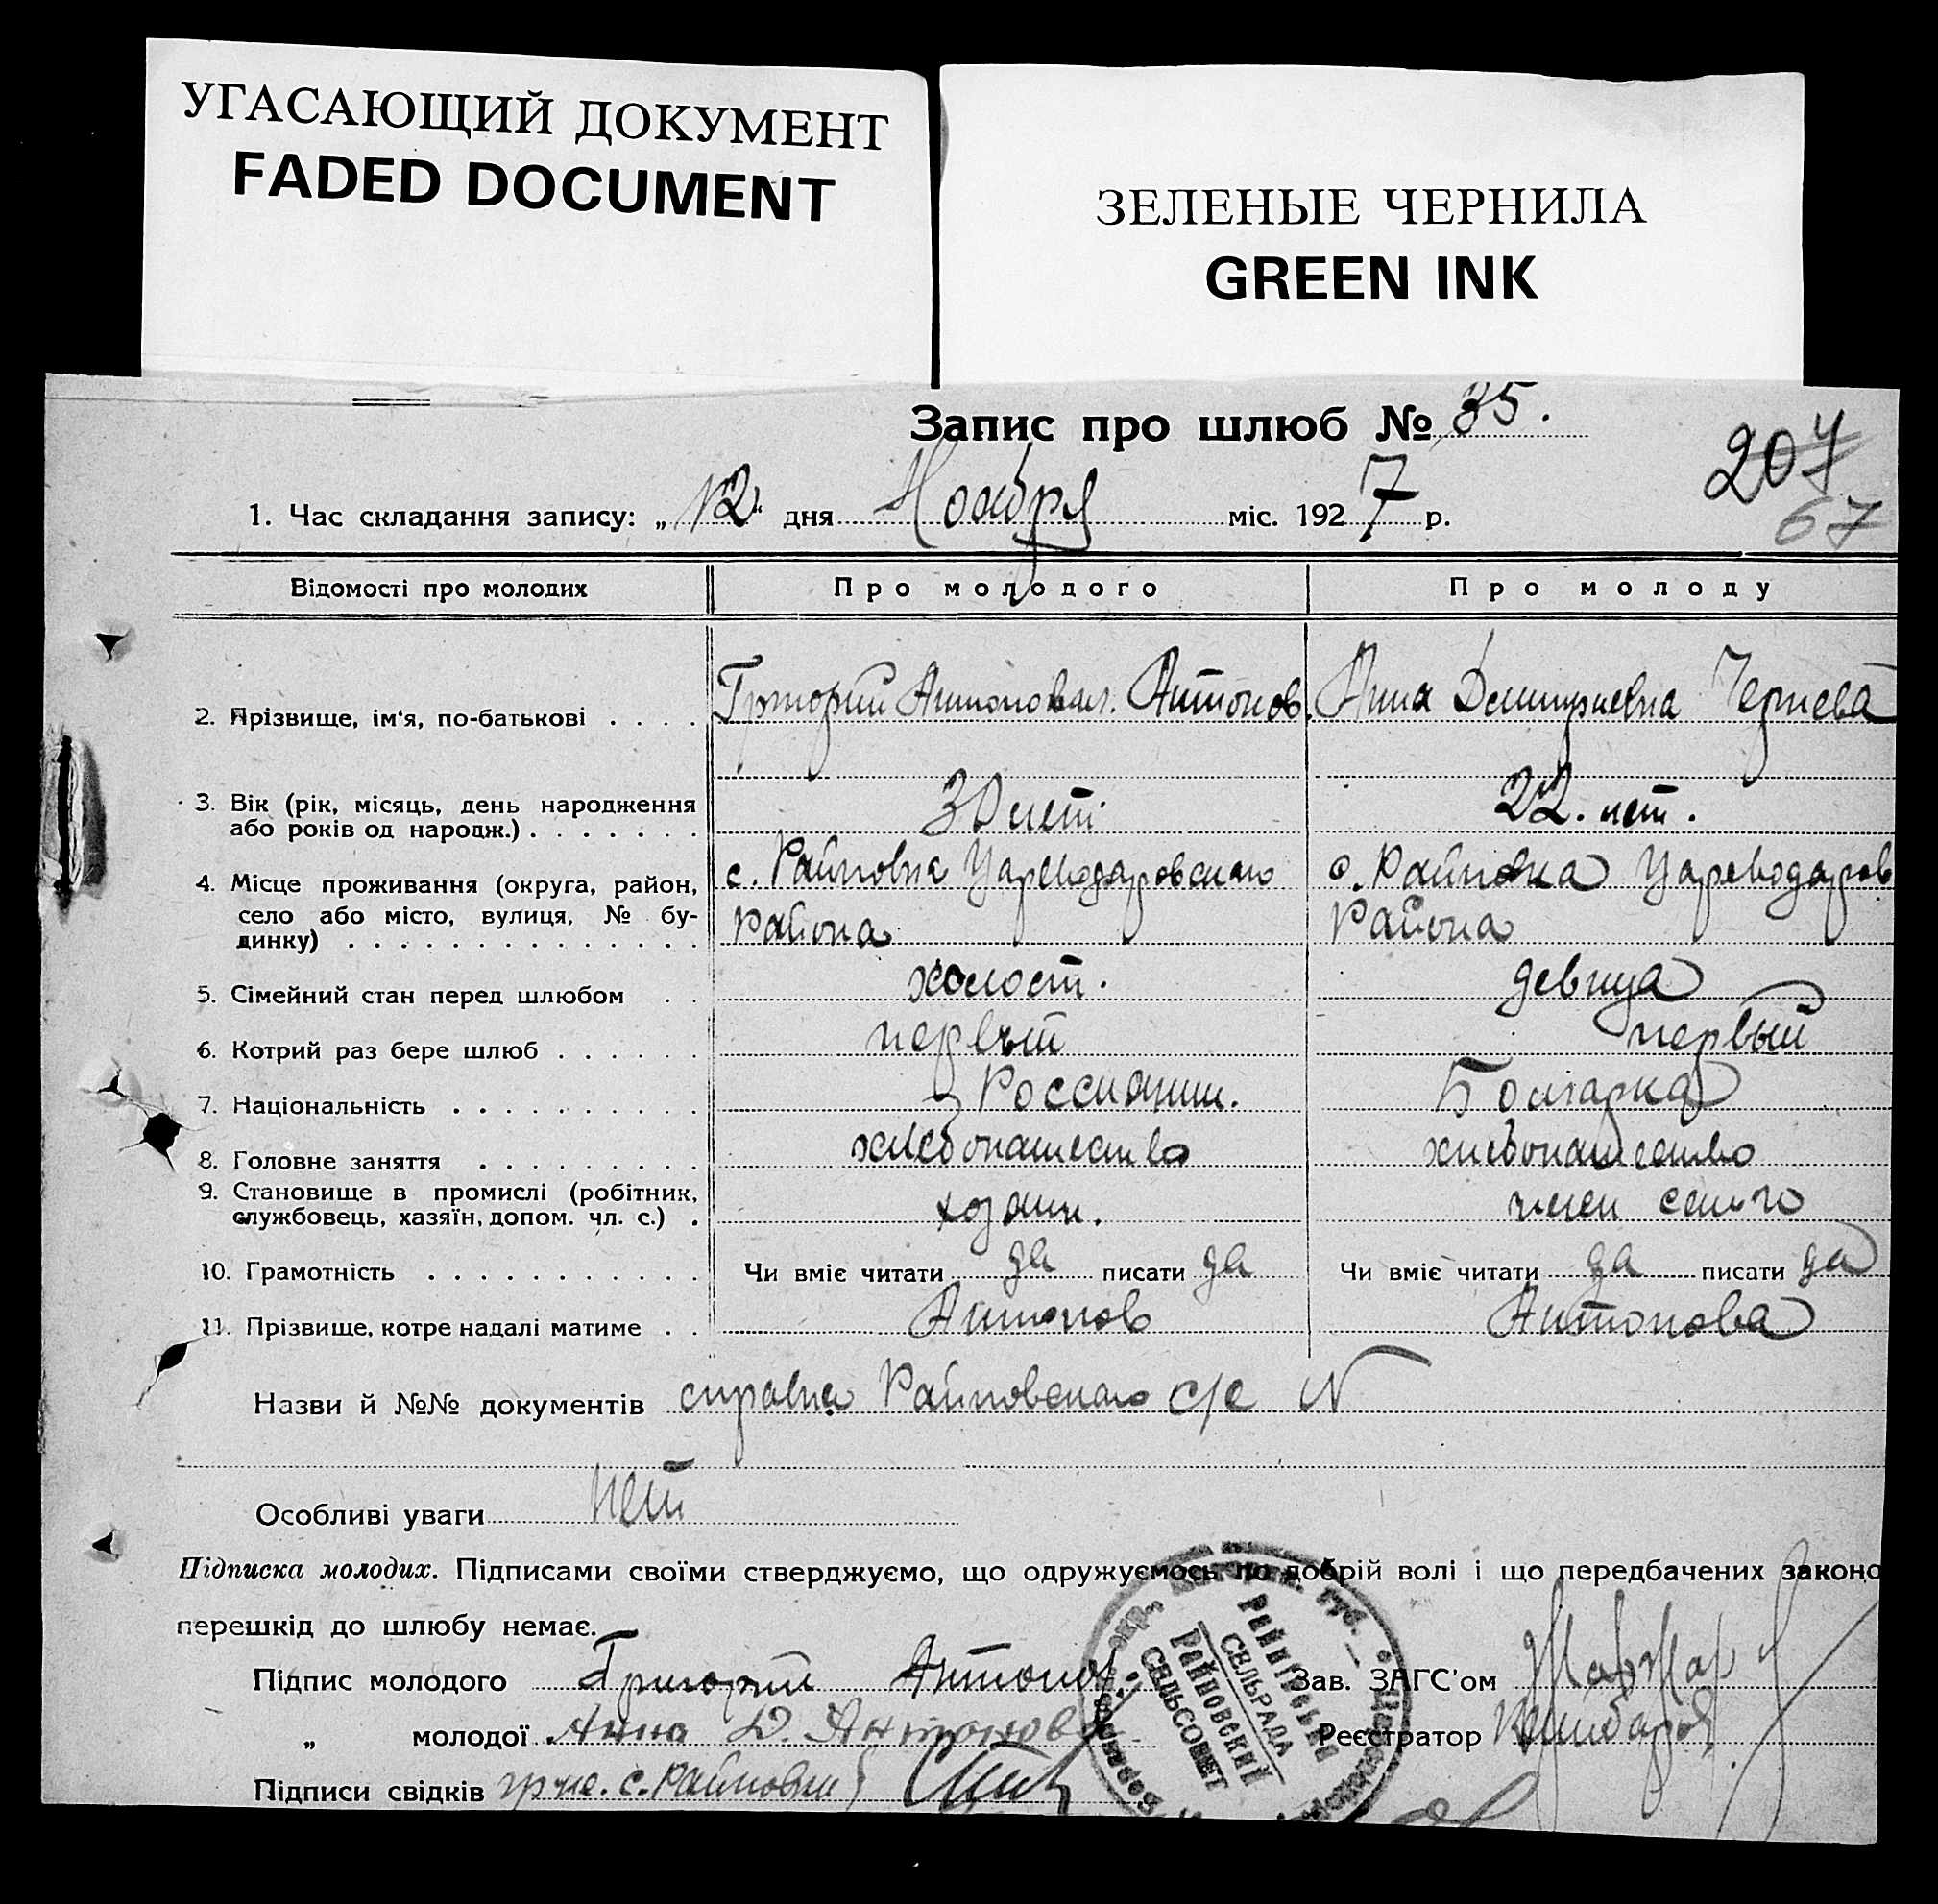 УГАСАЮЩИЙ ДОКУМЕНТ
FADED DOCUMENT
ЗЕЛЕНЫЕ ЧЕРНИЛА
GREEN INK
Запис про шлюб № 35.
207
67
1. Час складання запису: „12“ дня Ноября міс. 1927 р.
Відомості про молодих Про молодого Про молоду
2. Прізвище, ім‘я, по-батькові . . . . Григорий Антонович. Антонов. Анна Дмитриевна Чернева
3. Вік (рік, місяць, день народження
або років од народж.) . . . . . . . 30 лет. 22. лет.
4. Місце проживання (округа, район, с. Райновка Цареводаровского с. Райновка Цареводаров
село або місто, вулиця, № бу-
динку) . . . . . . . . . . . . . . Района Района
5. Сімейний стан перед шлюбом . . холост. девица
6. Котрий раз бере шлюб . . . . . . первый первый
7. Національність . . . . . . . . . . Россиянин. Болгарка
8. Головне заняття . . . . . . . . . хлебопашество хлебопашество
9. Становище в промислі (робітник,
службовець, хазяїн, допом. чл. с.) . хозяин. член
10. Грамотність . . . . . . . . . . . Чи вміє читати да писати да Чи вміє читати да писати да
11. Прізвище, котре надалі матиме . . Антонов Антонова
Назви й №№ документів справка Райновского с/с N
Особливі уваги нет
Підписка молодих. Підписами своїми стверджуємо, що одружуємось по добрій волі і що передбачених законо
перешкід до шлюбу немає.
Підпис молодого Григорий Антонов. Зав. ЗАГС'ом
„ молодої Анна Д. Антонова Реєстратор
Підписи свідків гр-не. с. Райновки
СЕЛЬРАДА
Райновский
СЕЛЬСОВЕТ